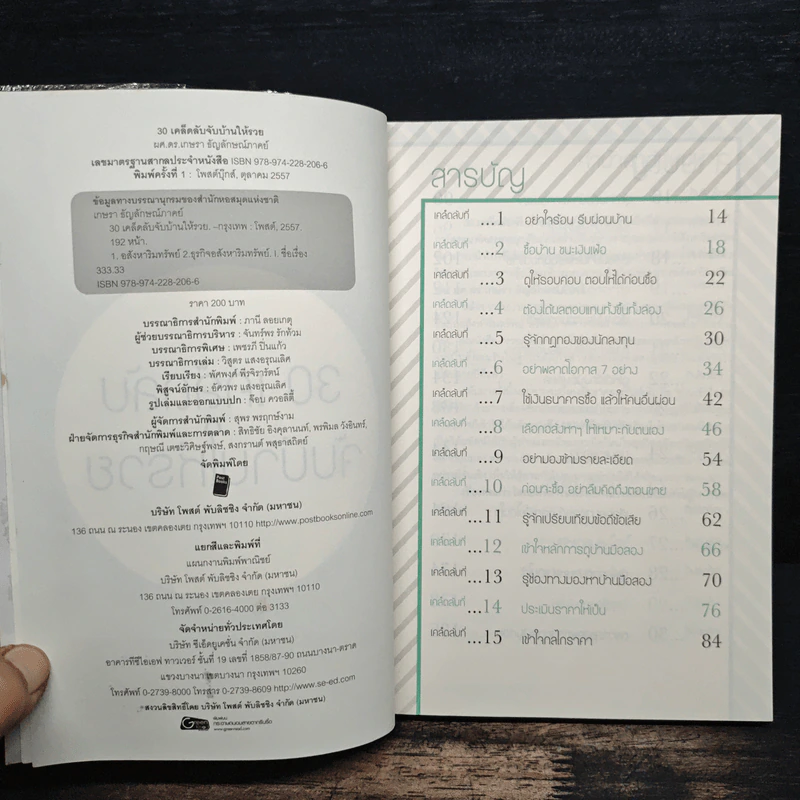 30 เคล็ดลับจับบ้านให้รวย
ผศ.ดร.เกษรา ธัญลักษณ์ภาคย์
เลขมาตรฐานสากลประจำหนังสือ ISBN 978-974-228-206-6
พิมพ์ครั้งที่ 1 : โพสต์บุ๊กส์, ตุลาคม 2557
ข้อมูลทางบรรณานุกรมของสำนักหอสมุดแห่งชาติ
เกษรา ธัญลักษณ์ภาคย์
30 เคล็ดลับจับบ้านให้รวย. –กรุงเทพ : โพสต์, 2557.
192 หน้า.
1. อสังหาริมทรัพย์ 2.ธุรกิจอสังหาริมทรัพย์. I. ชื่อเรื่อง
333.33
ISBN 978-974-228-206-6
ราคา 200 บาท
บรรณาธิการสำนักพิมพ์ : ภานี ลอยเกตุ
ผู้ช่วยบรรณาธิการบริหาร : จันทร์พร รักท้วม
บรรณาธิการพิเศษ : เพชรภี ปิ่นแก้ว
บรรณาธิการเล่ม : วิสูตร แสงอรุณเลิศ
เรียบเรียง : พัศพงศ์ พีรจิรารัตน์
พิสูจน์อักษร : อัศวพร แสงอรุณเลิศ
รูปเล่มและออกแบบปก : จ๊อบ ควอลิตี้
ผู้จัดการสำนักพิมพ์ : สุพร พรฤกษ์งาม
ฝ่ายจัดการธุรกิจสำนักพิมพ์และการตลาด : สิทธิชัย อิงคุลานนท์, พรพิมล วังอินทร์,
กฤษณี เตชะวิศิษฐ์พงษ์, สงกรานต์ พสุธาสถิตย์
จัดพิมพ์โดย
Post Books
บริษัท โพสต์ พับลิชชิง จำกัด (มหาชน)
136 ถนน ณ ระนอง เขตคลองเตย กรุงเทพฯ 10110 http://www.postbooksonline.com
แยกสีและพิมพ์ที่
แผนกงานพิมพ์พาณิชย์
บริษัท โพสต์ พับลิชชิง จำกัด (มหาชน)
136 ถนน ณ ระนอง เขตคลองเตย กรุงเทพฯ 10110
โทรศัพท์ 0-2616-4000 ต่อ 3133
จัดจำหน่ายทั่วประเทศโดย
บริษัท ซีเอ็ดยูเคชั่น จำกัด (มหาชน)
อาคารทีซีไอเอฟ ทาวเวอร์ ชั้นที่ 19 เลขที่ 1858/87-90 ถนนบางนา-ตราด
แขวงบางนา เขตบางนา กรุงเทพฯ 10260
โทรศัพท์ 0-2739-8000 โทรสาร 0-2739-8609 http://www.se-ed.com
สงวนลิขสิทธิ์โดย บริษัท โพสต์ พับลิชชิง จำกัด (มหาชน)
Green
สารบัญ
เคล็ดลับที่ ...1 อย่าใจร้อน รีบผ่อนบ้าน 14
เคล็ดลับที่ ...2 ซื้อบ้าน ชนะเงินเฟ้อ 18
เคล็ดลับที่ ...3 ดูให้รอบคอบ ตอบให้ได้ก่อนซื้อ 22
เคล็ดลับที่ ...4 ต้องได้ผลตอบแทนทั้งขึ้นทั้งล่อง 26
เคล็ดลับที่ ...5 รู้จักกฎทองของนักลงทุน 30
เคล็ดลับที่ ...6 อย่าพลาดโอกาส 7 อย่าง 34
เคล็ดลับที่ ...7 ใช้เงินธนาคารซื้อ แล้วให้คนอื่นผ่อน 42
เคล็ดลับที่ ...8 เลือกอสังหาฯ ให้เหมาะกับตนเอง 46
เคล็ดลับที่ ...9 อย่ามองข้ามรายละเอียด 54
เคล็ดลับที่ ...10 ก่อนจะซื้อ อย่าลืมคิดถึงตอนขาย 58
เคล็ดลับที่ ...11 รู้จักเปรียบเทียบข้อดีข้อเสีย 62
เคล็ดลับที่ ...12 เข้าใจหลักการดูบ้านมือสอง 66
เคล็ดลับที่ ...13 รู้ช่องทางมองหาบ้านมือสอง 70
เคล็ดลับที่ ...14 ประเมินราคาให้เป็น 76
เคล็ดลับที่ ...15 เข้าใจกลไกราคา 84